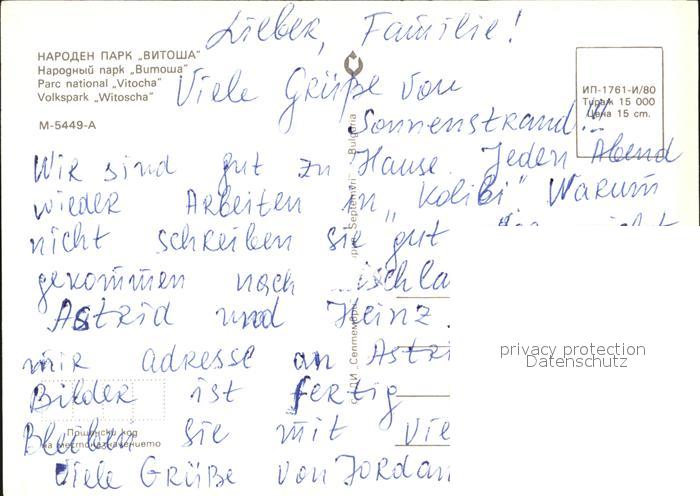 Lieber, Familie!
НАРОДЕН ПАРК „ВИТОША"
Народный парк „Витоша"
Parc national „Vitocha"
Volkspark „Witoscha"
М-5449-А
ИП-1761-И/80
Тираж 15 000
Цена 15 cm.
Viele Grüße von
Sonnenstrand!!!
Wir sind gut zu Hause. Jeden Abend
wieder Arbeiten in „Kolibi" Warum
nicht schreiben sie gut
gekommen nach
Astrid und Heinz
mir adresse an Astri
Bilder ist fertig
Bleiben sie mit Vie
Viele Grüße von Jordan
Пощенски код
на местоназначението
Septemvri" Bulgaria
„Септември
privacy protection
Datenschutz